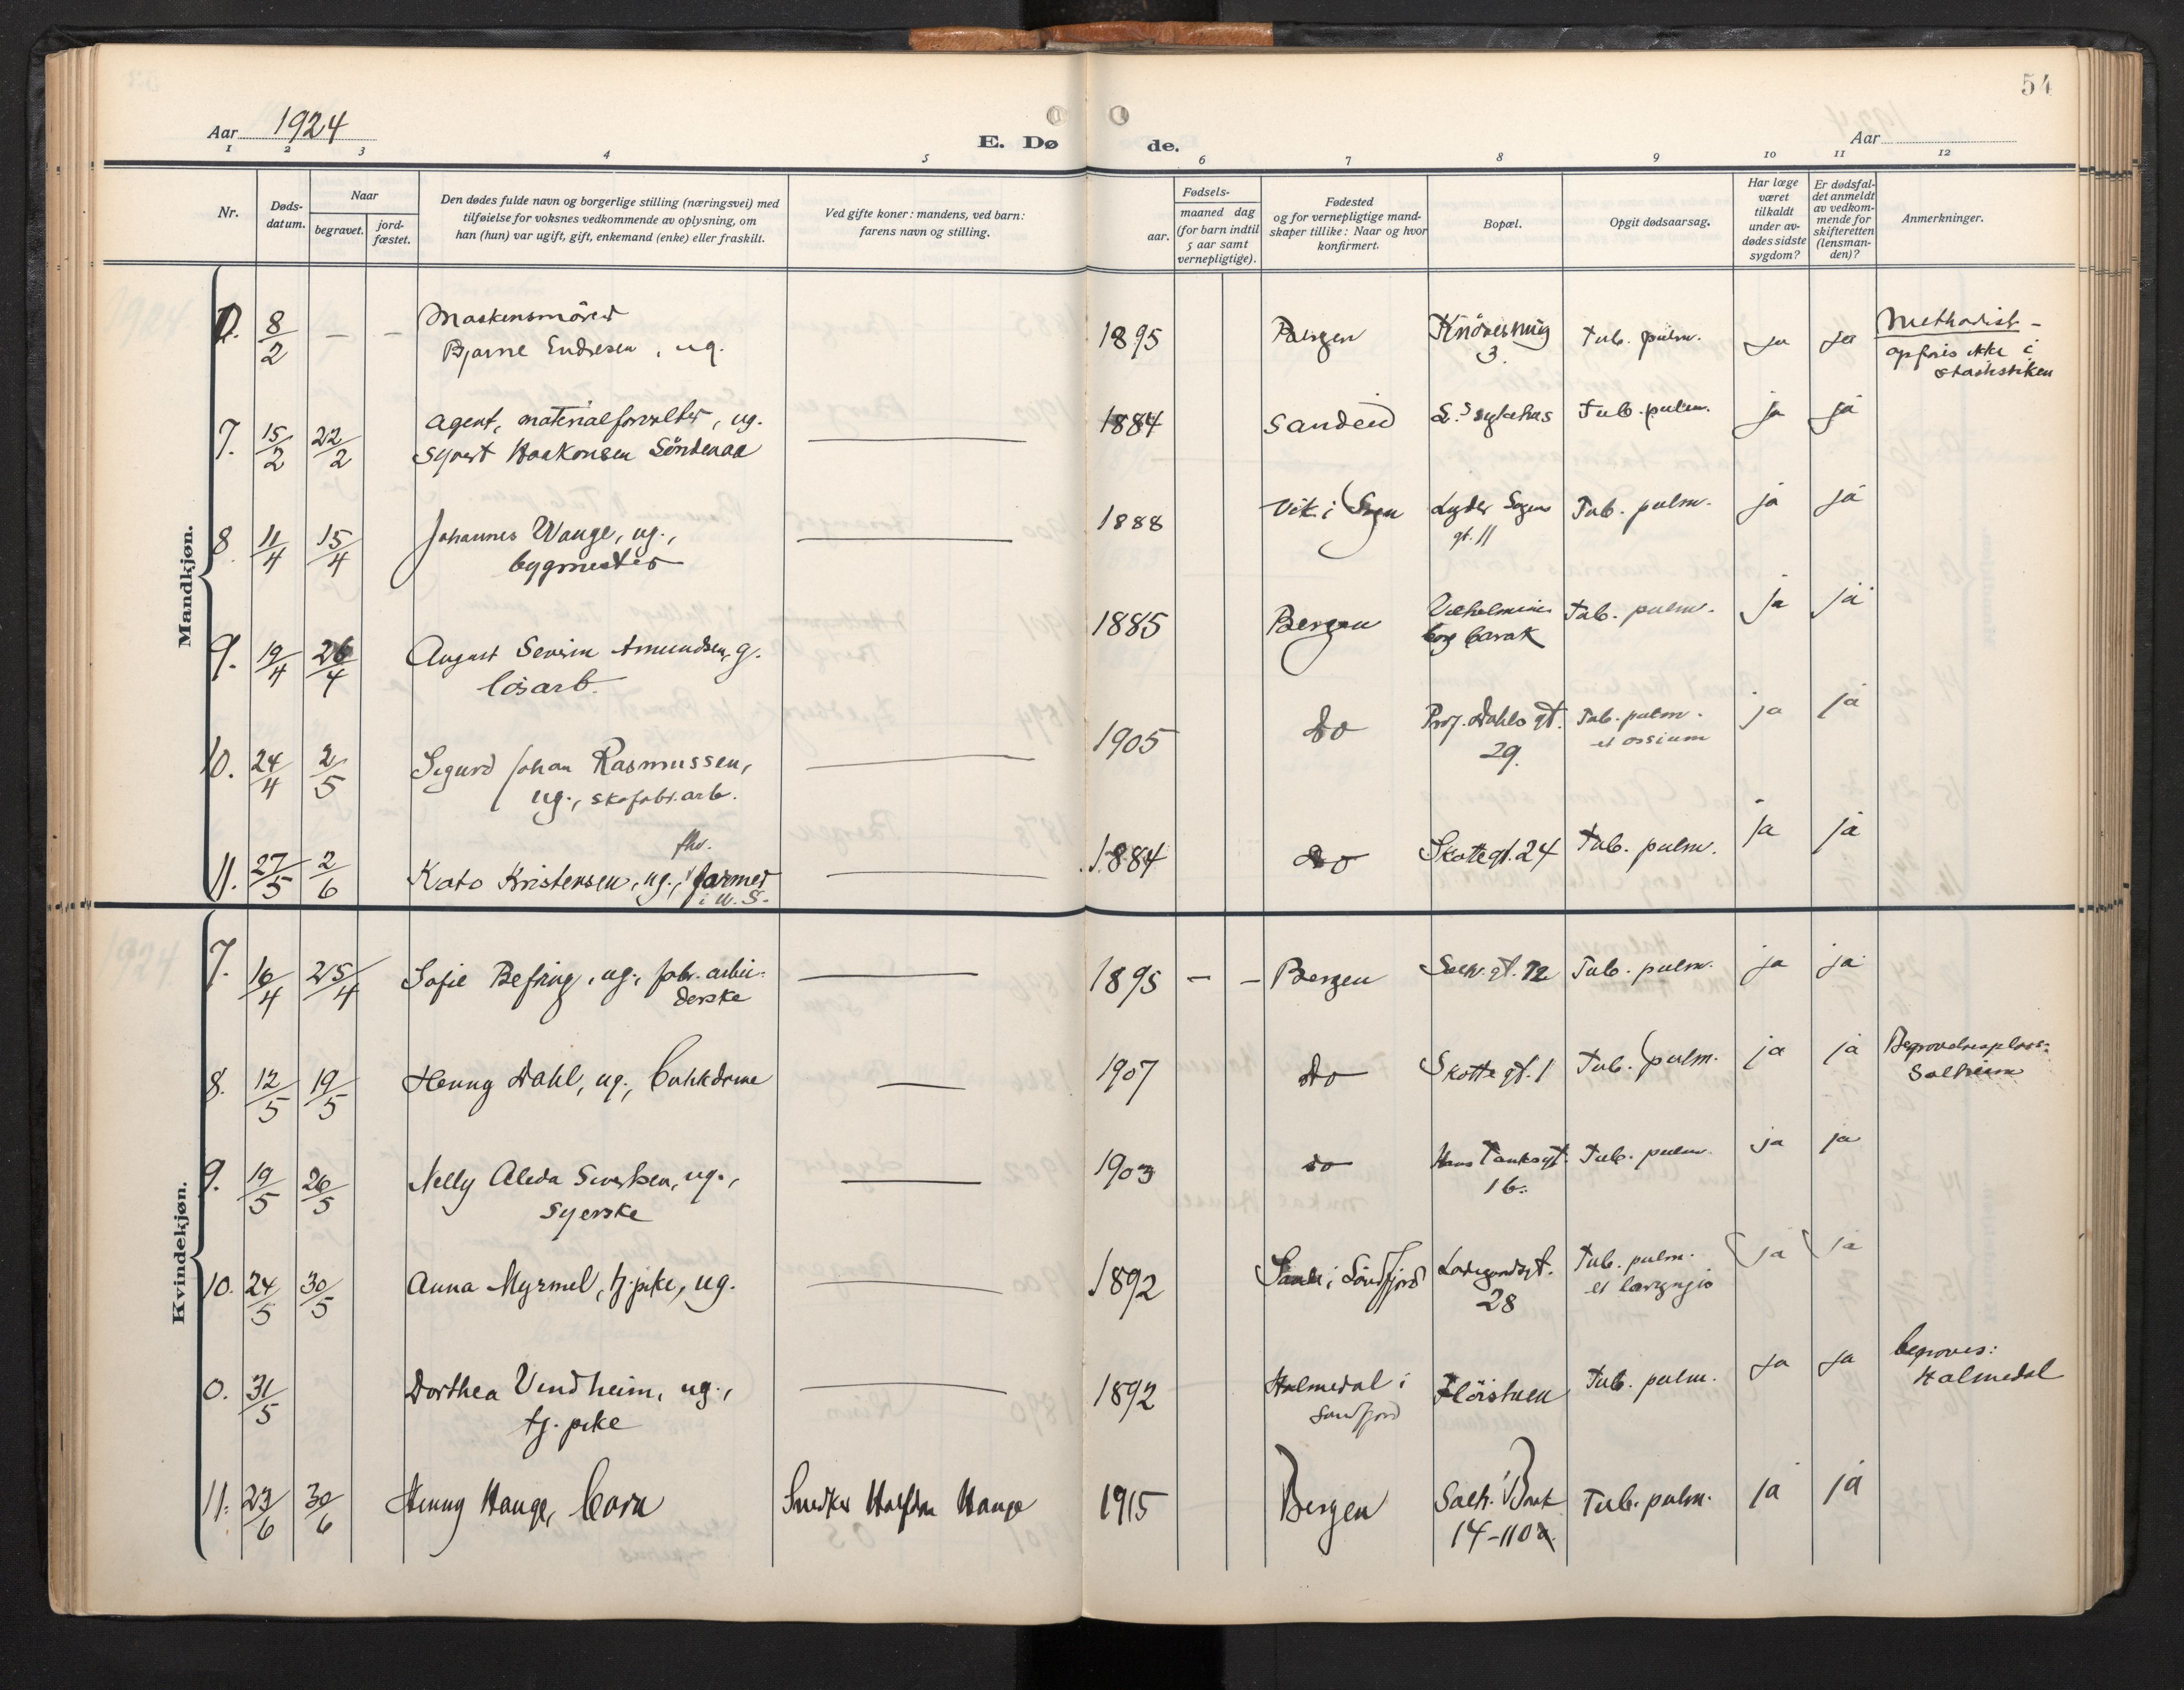 54
Aar 1924
E. Dø de.
Aar
1 2 3 4 5 6 7 8 9 10 11 12
Nr.
Døds-
datum.
Naar
begravet.
jord-
fæstet.
Den dødes fulde navn og borgerlige stilling (næringsvei) med
tilføielse for voksnes vedkommende av oplysning, om
han (hun) var ugift, gift, enkemand (enke) eller fraskilt.
Ved gifte koner: mandens, ved barn:
farens navn og stilling.
Fødsels-
aar.
maaned dag
(for barn indtil
5 aar samt
vernepligtige).
Fødested
og for vernepligtige mand-
skaper tillike: Naar og hvor
konfirmert.
Bopæl.
Opgit dødsaarsag.
Har læge
været
tilkaldt
under av-
dødes sidste
sygdom?
Er dødsfal-
det anmeldt
av vedkom-
mende for
skifteretten
(lensman-
den)?
Anmerkninger.
Mandkjøn.
0. 8/2 — — Maskinsmörer
Bjarne Endresen, ug.
1895 Bergen
3. Tub. pulm. ja ja Methodist –
opføris ikke i
statistiken
7. 15/2 22/2 Agent, materialforvalter, ug.
Sjovert Haakonsen Söndenaa
1884 Sandeid Tub. pulm. ja ja
8 11/4 15/4 Johannes Wange, ug.,
bygmester
1888 Vik i Sogn Lyder Sagens
gt. 11 Tub. pulm. ja ja
9. 19/4 26/4 August Severin Amundsen, g.
lösarb.
1885 Bergen Vilhelmine
borg barak Tub. pulm. ja ja
10. 24/4 2/5 Sigurd Johan Rasmussen,
ug., skofabr.arb.
1905 do Prof. Dahls gt.
29. Tub. pulm.
et ossium ja ja
11. 27/5 2/6 Kato Kristensen, ug., fhv. farmer
i U.S.
1884 do Skottegt. 24 Tub. pulm. ja ja
Kvindekjøn.
1924
7. 16/4 25/4 Sofie Befring, ug., fabr. arbei-
derske
1895 — — Bergen gt. 72 Tub. pulm. ja ja
8. 12/5 19/5 Henny Dahl, ug., butikdame
1907 do Skottegt. 1 Tub. pulm. ja ja Begravelsesplass:
Solheim
9. 19/5 26/5 Nelly Aleda Sivertsen, ug.,
syerske
1903 do Hans Tanksgt.
16. Tub. pulm. ja ja
10. 24/5 30/5 Anna Myrmel, tj.pike, ug.
1892 i Söndfjord Ladegaardsgt.
28 Tub. pulm.
et laryngis ja ja
0. 31/5 Dorthea Vindheim, ug.,
tj. pike
1892 Holmedal i
Sundfjord Flöistuen Tub. pulm. ja ja begraves:
Holmedal
11. 23/6 30/6 Henny Hauge, barn Snedker Halfdan Hauge
1915 Bergen Solh.
14-110a Tub. pulm. ja ja